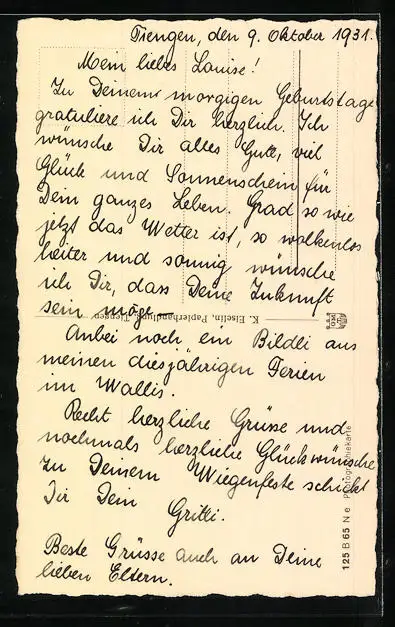 Tiengen, den 9. Oktober 1931.
Mein liebes Louise!
Zu Deinem morgigen Geburtstage
gratuliere ich Dir herzlich. Ich
wünsche Dir alles Gute, viel
Glück und Sonnenschein für
Dein ganzes Leben. Grad so wie
jetzt das Wetter ist, so wolkenlos
heiter und sonnig wünsche
ich Dir, dass Deine Zukunft
sein möge.
K. Eiselin, Papierhandlung, Tiengen
Anbei noch ein Bildli aus
meinen diesjährigen Ferien
im Wallis.
Recht herzliche Grüsse und
nochmals herzliche Glückwünsche
zu Deinem Wiegenfeste schickt
Dir Dein
Gritli.
Beste Grüsse auch an Deine
lieben Eltern.
125 B 65 N e Photographiekarte